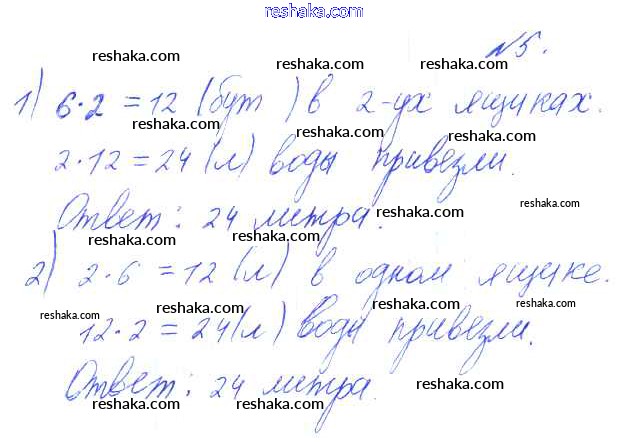 reshaka.com
№5.
reshaka.com reshaka.com
1) 6·2 = 12 (бут) в 2-ух ящиках.
reshaka.com reshaka.com
2·12 = 24 (л) воды привезли.
reshaka.com reshaka.com
Ответ: 24 литра.
reshaka.com reshaka.com
2) 2·6 = 12 (л) в одном ящике.
reshaka.com reshaka.com reshaka.com
12·2 = 24 (л) воды привезли.
reshaka.com reshaka.com
Ответ: 24 литра.
reshaka.com reshaka.com reshaka.com